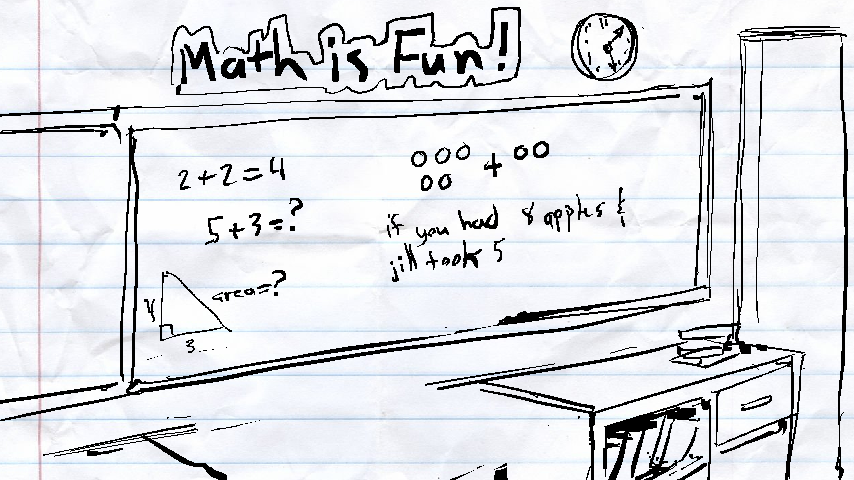 Math is Fun!
2+2=4
5+3=?
4
area=?
3
+
if you had 8 apples &
jill took 5